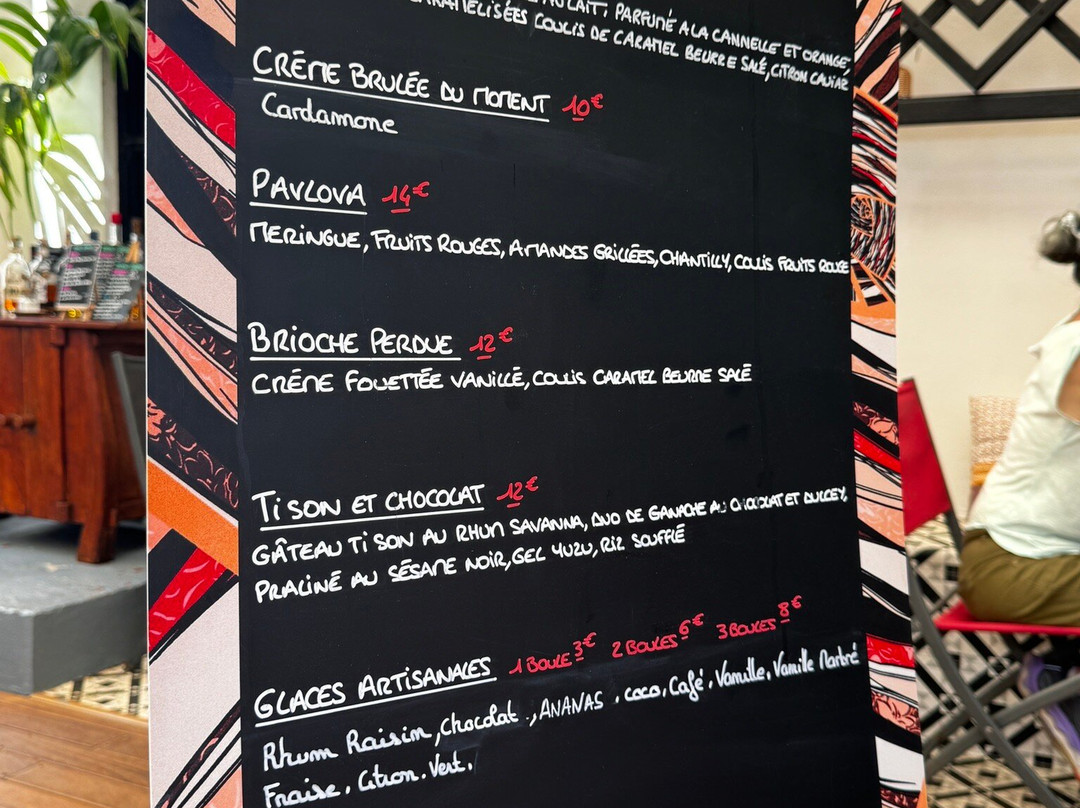 AU LAIT, PARFUMÉ A LA CANNELLE ET ORANGE,
CARAMELISÉES COULIS DE CARAMEL BEURRE SALÉ, CITRON CAVIAR
CRÉME BRULÉE DU MOMENT 10€
Cardamone
PAVLOVA 14€
MERINGUE, FRUITS ROUGES, AMANDES GRILLÉES, CHANTILLY, COULIS FRUITS ROUGE
BRIOCHE PERDUE 12€
CRÉME FOUETTÉE VANILLE, COULIS CARAMEL BEURRE SALÉ
TI SON ET CHOCOLAT 12€
GÂTEAU TI SON AU RHUM SAVANNA, DUO DE GANACHE AU CHOCOLAT ET DULCEY,
PRALINÉ AU SÉSAME NOIR, GEL YUZU, RIZ SOUFFLÉ
GLACES ARTISANALES 1 BOULE 3€ 2 BOULES 6€ 3 BOULES 8€
Rhum Raisin, Chocolat., ANANAS, coco, Café, Vanille, Vanille Marbré
Fraise, Citron. Vert.